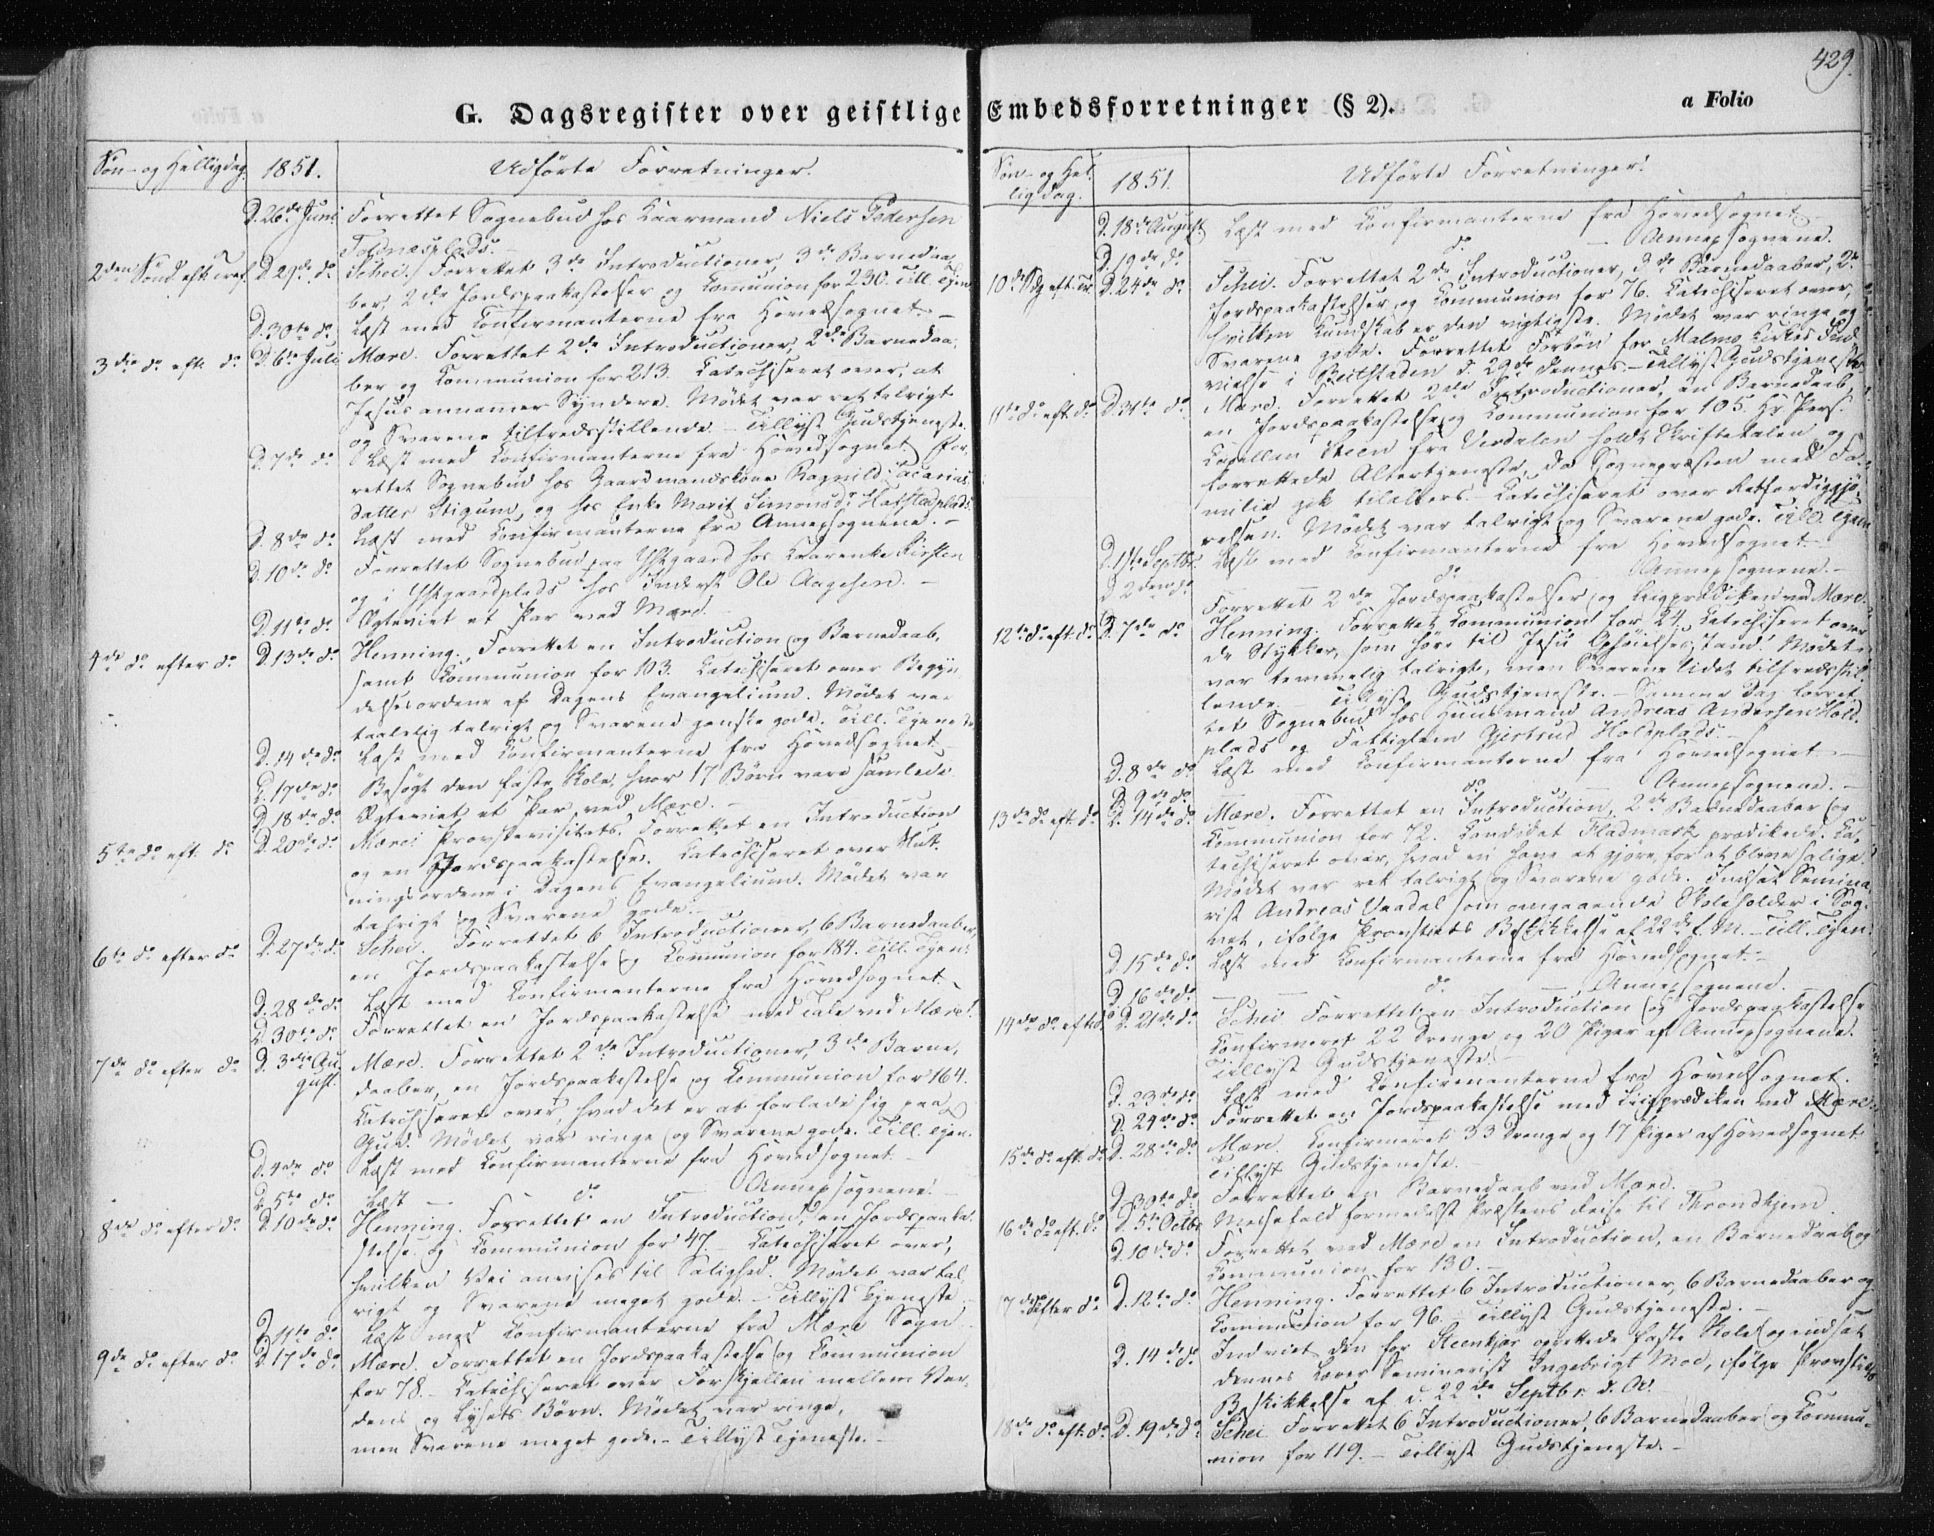 429.
G. Dagsregister over geistlige Embedsforretninger (§ 2).
a Folio
Søn- og Helligdag. 1851. Udførte Forretninger.
D. 26de Juni Forrettet Sognebud hos Kaarmand Niels Pedersen
plads.
2den Sønd. eft. Tref. D. 29de do Schei. Forrettet 3de Introductioner, 3de Barnedaa-
ber, 2de Jordspaakastelser og Communion for 230. Till. Tjen.
D. 30te do Læst med Confirmanterne fra Hovedsognet. –
3die do eft. do D. 6te Juli Mære. Forrettet 2de Introductioner, 2de Barnedaa-
ber og Communion for 213. Catechiseret over, at
Jesus annamer Syndere. Mødet var ret talrigt
og Svarene tilfredsstillende. – Tillyst Gudstjeneste.
D. 7de do Læst med Confirmanterne fra Hovedsognet. For-
rettet Sognebud hos Gaardmandskone Ragnild Zacarias-
datter Stigum, og hos Enke Marit Simonsdr Halstadplads.
D. 8de do Læst med Confirmanterne fra Annexsognene. –
D. 10de do Forrettet Sognebud paa Ystgaard hos Kaarenke Kirsten
og i Ystgaardplads hos Inderst Ole Aagesen. –
D. 11te do Egteviet et Par ved Mære.
4de do efter do D. 13de do Henning. Forrettet en Introduction og Barnedaab,
samt Communion for 103. Catechiseret over Begyn-
delsesordene af Dagens Evangelium. Mødet var
taalelig talrigt og Svarene ganske gode. Till. Tjeneste
D. 14de do Læst med Confirmanterne fra Hovedsognet. –
D. 17de do Besøgt den faste Skole, hvor 17 Børn vare samlede.
D. 18de do Egteviet et Par ved Mære. –
5te do eft. do D. 20de do Mære. Provstevisitats. Forrettet en Introduction
og en Jordspaakastelse. Catechiseret over Slut-
ningsordene i Dagens Evangelium. Mødet var
talrigt og Svarene gode. –
6te do efter do D. 27de do Schei. Forrettet 6 Introductioner, 6 Barnedaaber,
en Jordspaakastelse og Communion for 184. Till. Tjen.
D. 28de do Læst med Confirmanterne fra Hovedsognet.
D. 30te do Forrettet en Jordspaakastelse med Tale ved Mære.
7de do efter do D. 3die Au- Mære. Forrettet 2de Introductioner, 3de Barne-
gust. daaber, en Jordspaakastelse og Communion for 164.
Catechiseret over, hvad det er at forlade sig paa
Gud. Mødet var ringe og Svarene gode. Till. Tjen.
D. 4de do Læst med Confirmanterne fra Hovedsognet. –
D. 5te do Læst – do – Annexsognene. –
8de do efter do D. 10de do Henning. Forrettet en Introduction, en Jordspaaka-
stelse og Communion for 47. Catechiseret over,
hvilken Vei anvises til Salighed. Mødet var tal-
rigt og Svarene meget gode. – Tillyst Tjeneste.
D. 11te do Læst med Confirmanterne fra Mære Sogn.
9de do efter do D. 17de do Mære. Forrettet en Jordspaakastelse og Communion
for 78. – Catechiseret over Forskjellen mellem Ver-
dens og Lysets Børn. Mødet var ringe,
men Svarene meget gode. – Tillyst Tjeneste. –
Søn- og Hel-
lig dag. 1851. Udførte Forretninger.
D. 18de August Læst med Confirmanterne fra Hovedsognet. –
D. 19de do – do – Annexsognene.
10de Sdg eft. Tr. D. 24de do Schei. Forrettet 2de Introductioner, 3de Barnedaaber, 2de
Jordspaakastelser og Communion for 76. Catechiseret over,
hvilken Kundskab er den vigtigste. Mødet var ringe og
Svarene gode. Forrettet Forbøn for Malmo Kirkes Ind-
vielse i Beitstaden d. 29de dennes. – Tillyst Gudstjeneste
11te do eft. do D. 31te do Mære. Forrettet 2de Introductioner, en Barnedaab,
en Jordspaakastelse og Communion for 105. Hr Pers.
Capellan Steen fra Verdalen holdt Skriftetalen og
forrettede Altertjeneste, da Sognepræsten med Fa-
milie gik tilalters. – Catechiseret over Retfærdiggjø-
relsen. Mødet var talrigt og Svarene gode. Till. Tjen.
D. 1ste Septbr. Læst med Confirmanterne fra Hovedsognet. –
D. 2den do – do – Annexsognene. –
Forrettet 2de Jordspaakastelser og Liigprædiken ved Mære.
12te do eft. do D. 7de do Henning. Forrettet Communion for 24. Catechiseret over
de Stykker, som høre til Jesu Ophøielses Stand. Mødet
var temmelig talrigt, men Svarene lidet tilfredsstil-
lende. Tillyst Gudstjeneste. – Samme Dag forret-
tet Sognebud hos Huusmand Andreas Andersen Hold-
plads og Fattiglem Gjertrud Holdplads. –
D. 8de do Læst med Confirmanterne fra Hovedsognet. –
D. 9de do – do – Annexsognene. –
13de do eft. do D. 14de do Mære. Forrettet en Introduction, 2de Barnedaaber og
Communion for 72. Candidat Fladmark prædikede. Ca-
techiseret over, hvad vi have at gjøre, for at blive salige.
Mødet var ret talrigt og Svarene gode. Indsat Semina-
rist Andreas Vaadal som omgaaende Skoleholder i Sog-
net, ifølge Provstiets Beskikkelse af 22de f. M. – Till. Tjen.
D. 15de do Læst med Confirmanterne fra Hovedsognet. –
D. 16de do – do – Annexsognene.
14de do eft do D. 21de do Schei. Forrettet en Introduction og Jordspaakastelse.
Confirmeret 22 Drenge og 20 Piger af Annexsognene.
Tillyst Gudstjeneste. –
D. 23de do Læst med Confirmanterne fra Hovedsognet.
D. 24de do Forrettet en Jordspaakastelse med Liigprædiken ved Mære.
15de do eft. do D. 28de do Mære. Confirmeret 33 Drenge og 17 Piger af Hovedsognet.
Tillyst Gudstjeneste. –
D. 30te do Forrettet en Barnedaab ved Mære.
16de do eft. do D. 5te Octbr Messefald formedelst Præstens Reise til Throndhjem.
D. 10de do Forrettet ved Mære en Introduction, en Barnedaab og
Communion for 130. –
17de do efter do D. 12te do Henning. Forrettet 6 Introductioner, 6 Barnedaaber og
Communion for 96. Tillyst Gudstjeneste. –
D. 14de do Indviet den for Steenkjær oprettede faste Skole og indsat
dennes Lærer Seminarist Ingebrigt Moe, ifølge Provstiets
Beskikkelse af d. 22de Septbr. d. A.
18de do eft. do D. 19de do Schei. Forrettet 6 Introductioner, 6 Barnedaaber og Commu-
nion for 119. – Tillyst Gudstjeneste. –